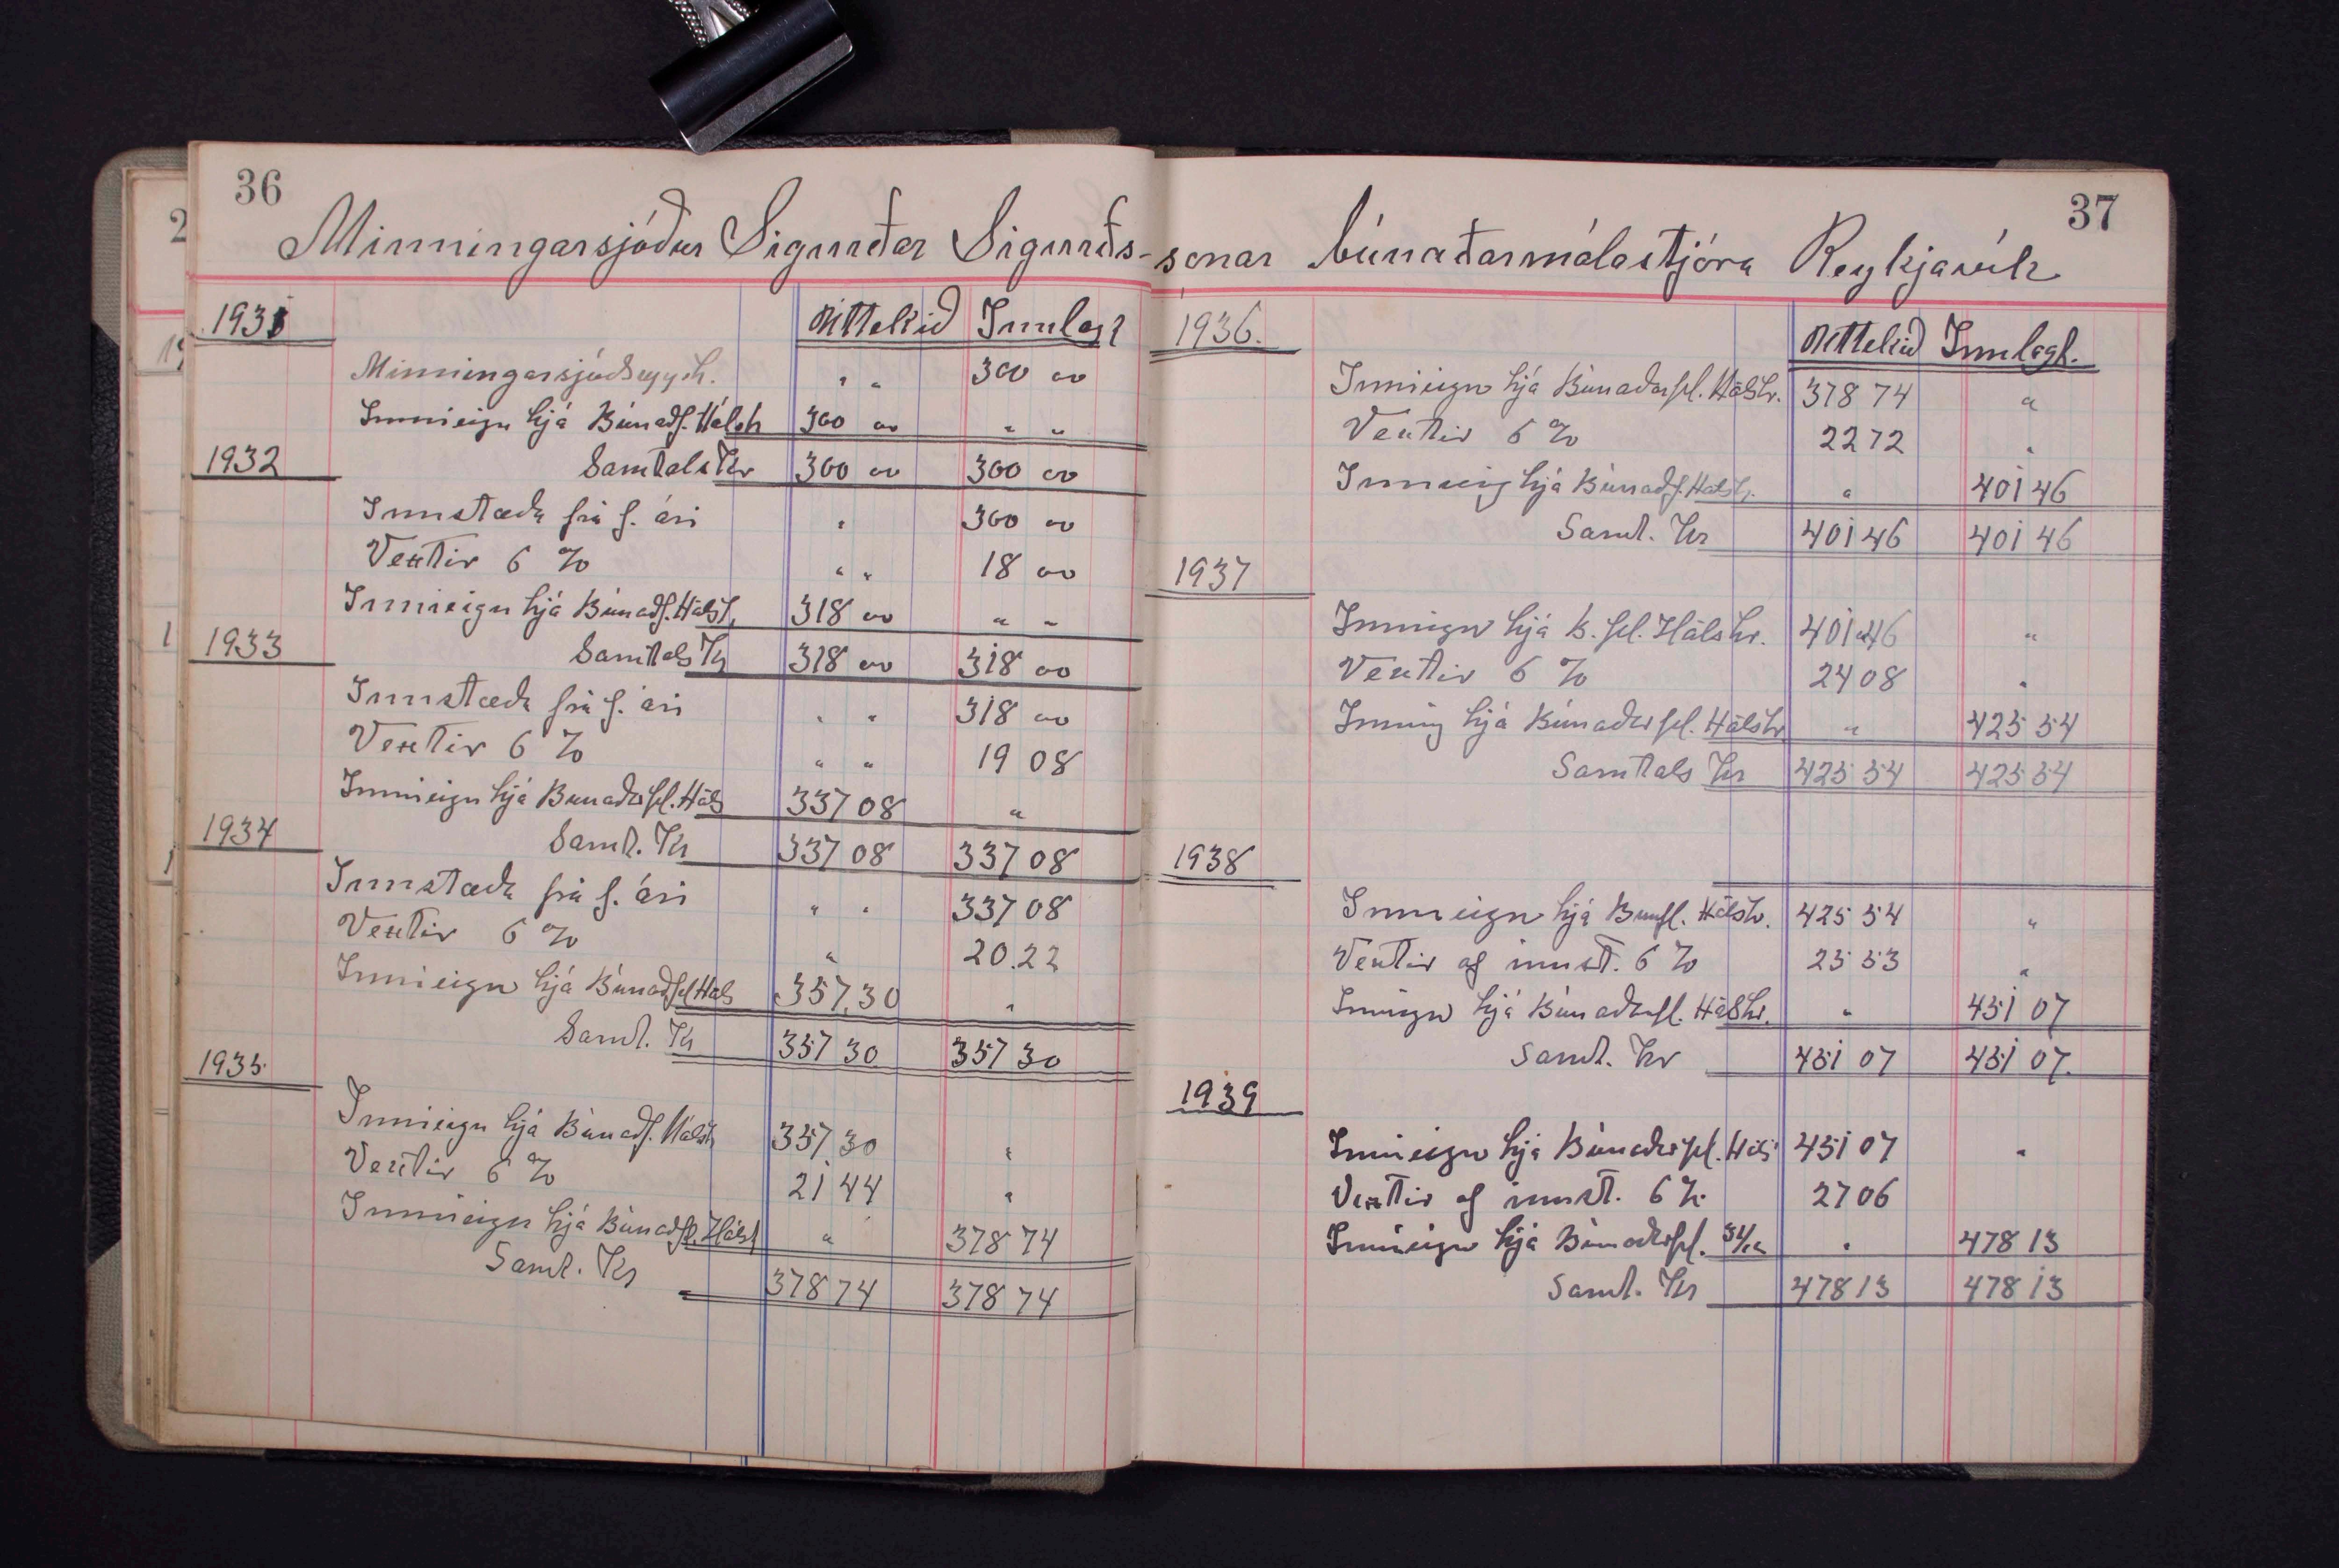 36
Minningarsjóður Sigurðar Sigurðs-
1931 Úttekið Innlagt
Minningarsjóðs " " 300 00
Innieign hjá Búnaðf. Hálsh 300 00 " "
1932 Samtals Kr 300 00 300 00
Innstæða frá f. ári " 300 00
Vextir 6 % " " 18 00
Innieign hjá Búnaðf. Hálsh. 318 00 " "
1933 Samtals Kr 318 00 318 00
Innstæða frá f. ári " " 318 00
Vextir 6 % " " 19 08
Innieign hjá Búnaðarfél. Háls 337 08 "
1934 Samt. Kr 337 08 337 08
Innstæða frá f. ári " " 337 08
Vextir 6 % " 20.22
Innieign hjá Búnaðfél Háls 357,30 "
Samt. Kr 357 30 357 30
1935.
Innieign hjá Búnaðf. Hálsh 357 30 "
Vextir 6 % 21 44 "
Innieign hjá Búnaðfl. Hálsh " 378 74
Samt. Kr 378 74 378 74
37
sonar búnaðarmálastjóra Reykjavík
1936. Úttekið Innlagt.
Innieign hjá Búnaðarfél. Hálshr. 378 74 "
Vextir 6 % 22 72 "
Innieig hjá Búnaðf. Hálsh. " 401 46
Samt. Kr 401 46 401 46
1937
Inneign hjá B. fél. Hálshr. 401 46 "
Vextir 6 % 24 08 "
Inneig hjá Búnaðarfél. Hálshr " 425 54
Samtals Kr 425 54 425 54
1938
Innieign hjá Búnfl. Hálshr. 425 54 "
Vextir af innst. 6 % 25 53 "
Inneign hjá Búnaðarfl. Hálshr. " 451 07
Samt. Kr 451 07 451 07.
1939
Innieign hjá Búnaðarfél. Háls 451 07 "
Vextir af innst. 6 % 27 06
Innieign hjá Búnaðarfél. 31/12 " 478 13
Samt. Kr 478 13 478 13